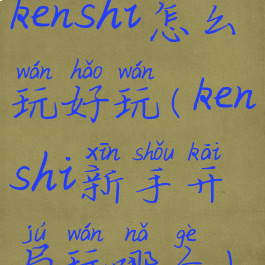 kenshi怎么
wán hǎo wán
玩好玩(ken
xīn shǒu kāi
shi新手开
jú wán nǎ ge
局玩哪个)